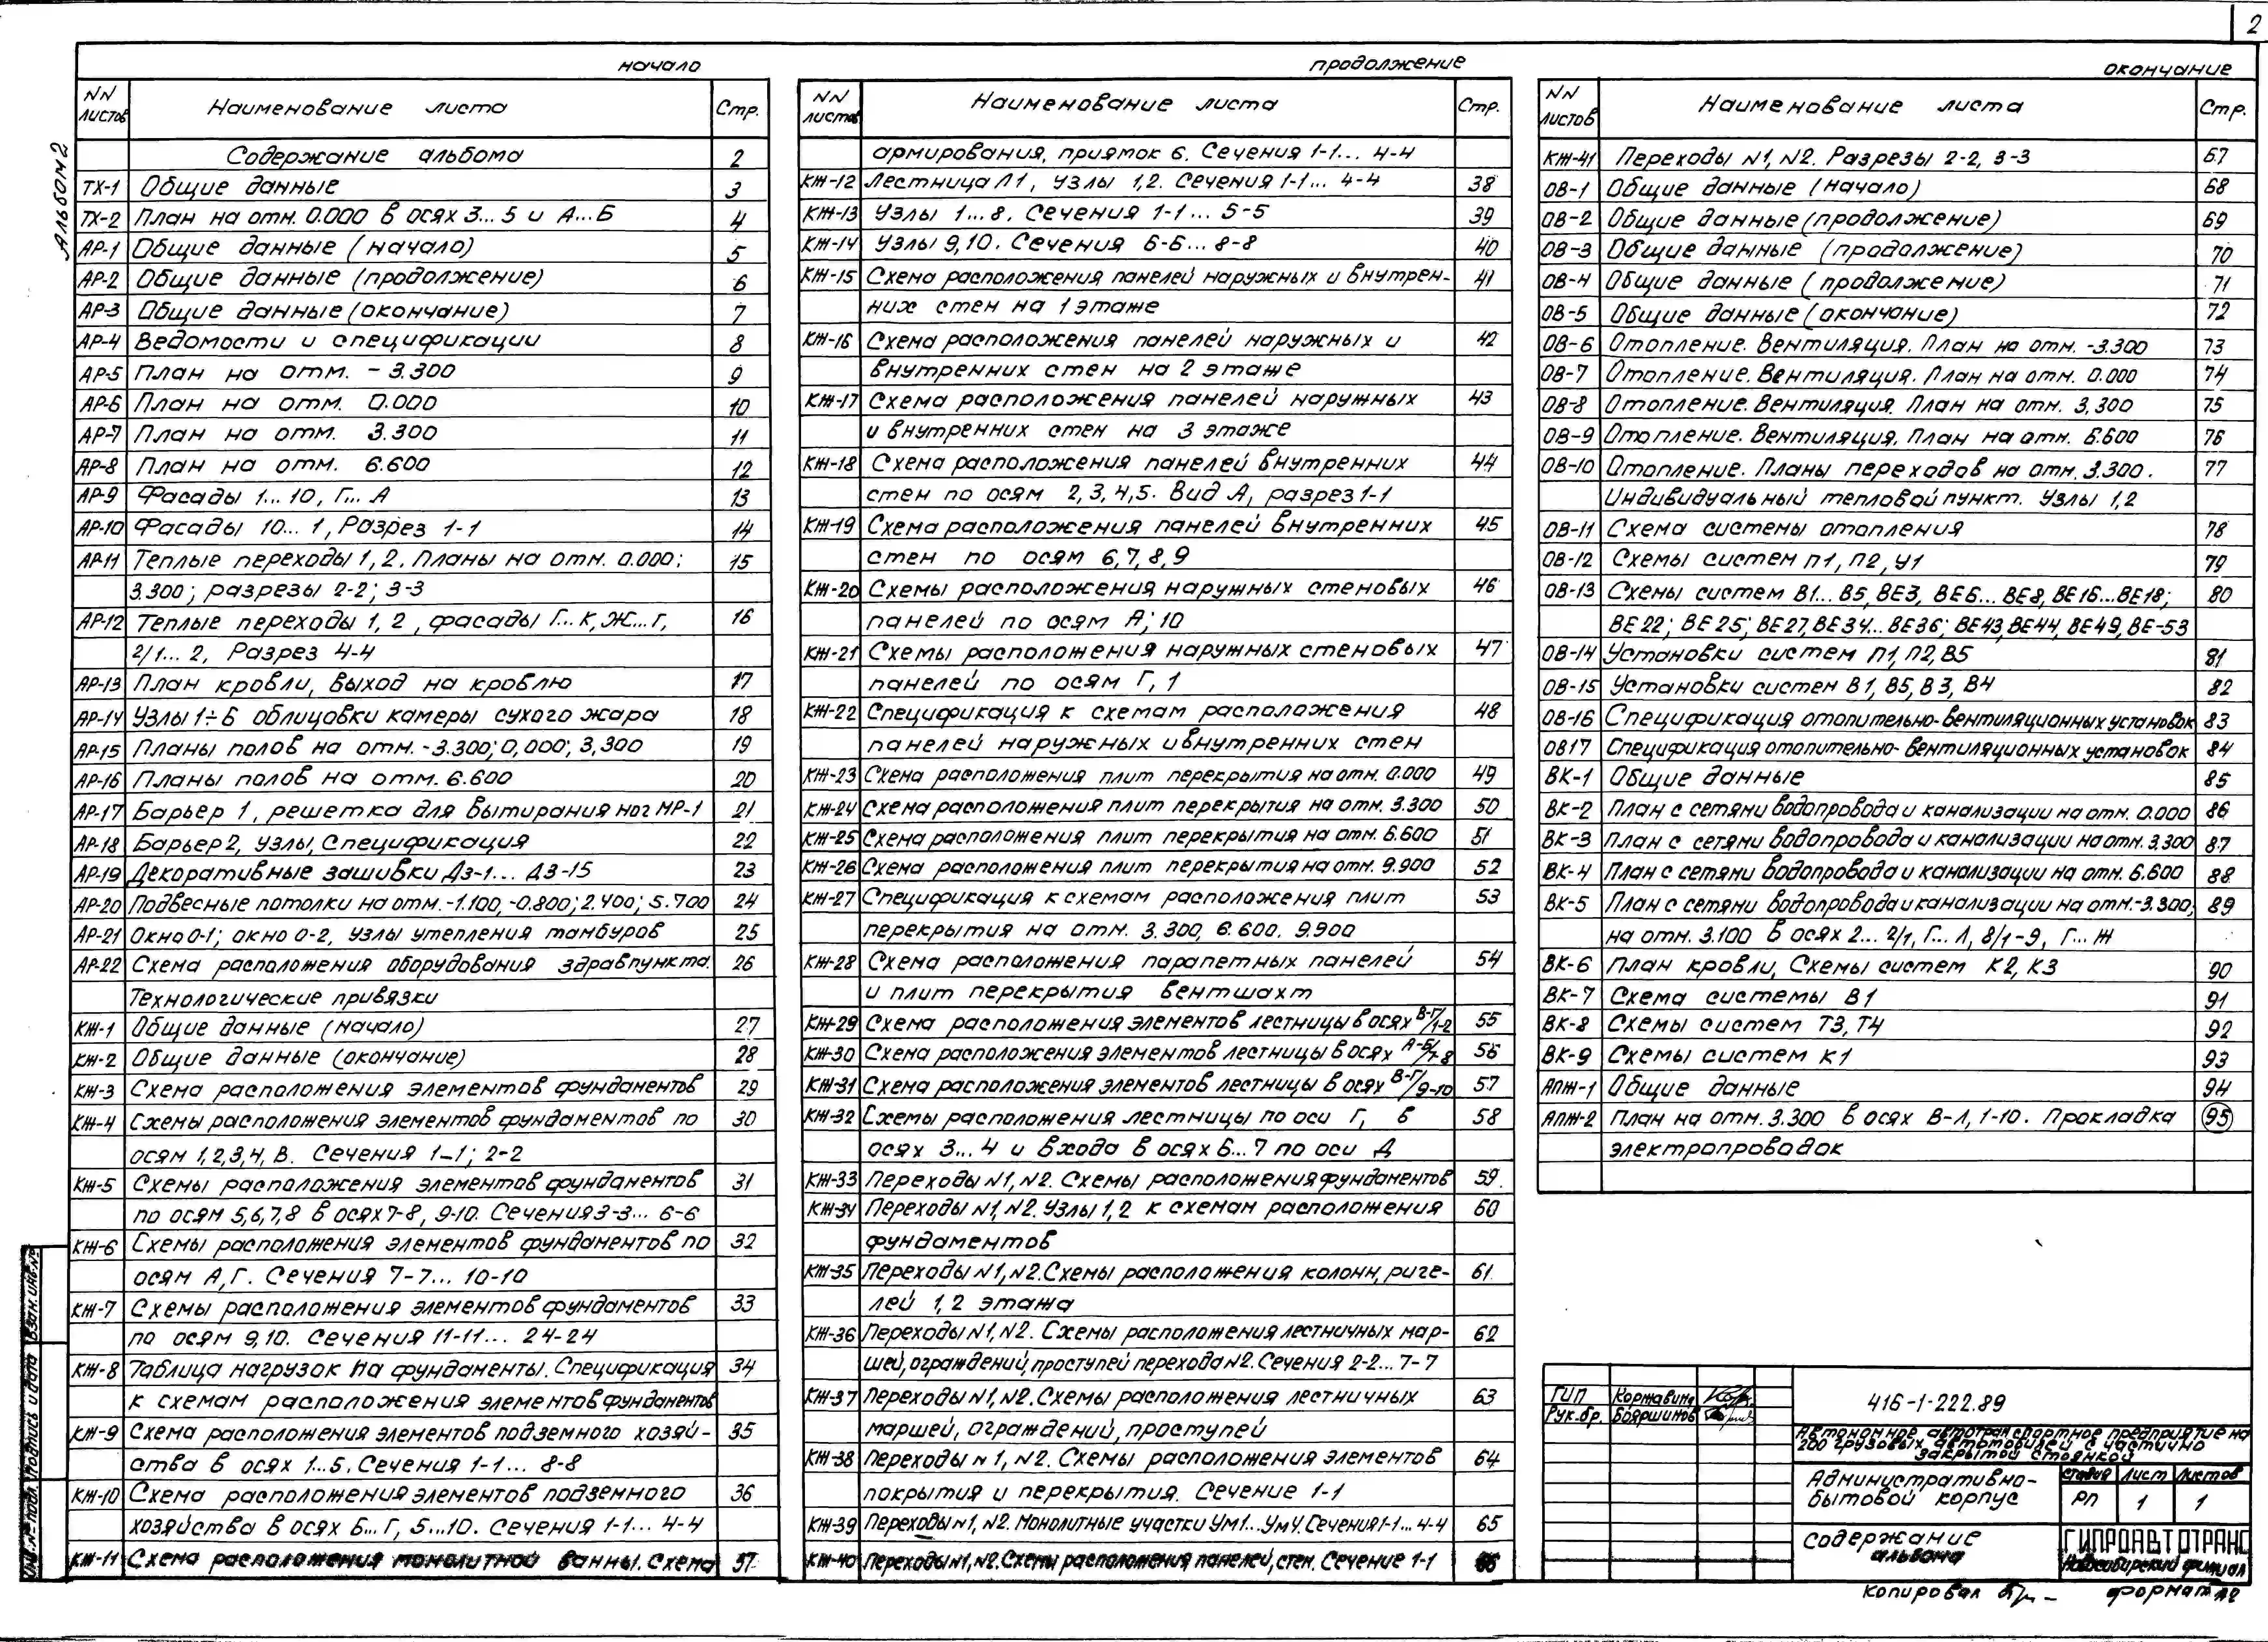 2
Альбом 2
начало
NN листов Наименование листа Стр.
Содержание альбома 2
ТХ-1 Общие данные 3
ТХ-2 План на отм. 0.000 в осях 3...5 и А...Б 4
АР-1 Общие данные (начало) 5
АР-2 Общие данные (продолжение) 6
АР-3 Общие данные (окончание) 7
АР-4 Ведомости и спецификации 8
АР-5 План на отм. -3.300 9
АР-6 План на отм. 0.000 10
АР-7 План на отм. 3.300 11
АР-8 План на отм. 6.600 12
АР-9 Фасады 1...10, Г...А 13
АР-10 Фасады 10...1, Разрез 1-1 14
АР-11 Теплые переходы 1, 2. Планы на отм. 0.000; 15
3.300; разрезы 2-2; 3-3
АР-12 Теплые переходы 1, 2, фасады Г...К, Ж...Г, 16
2/1...2, Разрез 4-4
АР-13 План кровли, выход на кровлю 17
АР-14 Узлы 1÷6 облицовки камеры сухого жара 18
АР-15 Планы полов на отм. -3.300; 0,000; 3,300 19
АР-16 Планы полов на отм. 6.600 20
АР-17 Барьер 1, решетка для вытирания ног МР-1 21
АР-18 Барьер 2, узлы, Спецификация 22
АР-19 Декоративные зашивки Дз-1... Дз-15 23
АР-20 Подвесные потолки на отм. -1.100, -0.800; 2.400; 5.700 24
АР-21 Окно О-1; окно О-2, узлы утепления тамбуров 25
АР-22 Схема расположения оборудования здравпункта. 26
Технологические привязки
КЖ-1 Общие данные (начало) 27
КЖ-2 Общие данные (окончание) 28
КЖ-3 Схема расположения элементов фундаментов 29
КЖ-4 Схемы расположения элементов фундаментов по 30
осям 1,2,3,4, В. Сечения 1-1; 2-2
КЖ-5 Схемы расположения элементов фундаментов 31
по осям 5,6,7,8 в осях 7-8, 9-10. Сечения 3-3... 6-6
КЖ-6 Схемы расположения элементов фундаментов по 32
осям А, Г. Сечения 7-7... 10-10
КЖ-7 Схемы расположения элементов фундаментов 33
по осям 9,10. Сечения 11-11... 24-24
КЖ-8 Таблица нагрузок на фундаменты. Спецификация 34
к схемам расположения элементов фундаментов
КЖ-9 Схема расположения элементов подземного хозяй- 35
ства в осях 1...5. Сечения 1-1... 8-8
КЖ-10 Схема расположения элементов подземного 36
хозяйства в осях Б...Г, 5...10. Сечения 1-1... 4-4
КЖ-11 Схема расположения монолитной ванны. Схема 37
продолжение
NN листов Наименование листа Стр.
армирования, приямок 6. Сечения 1-1... 4-4
КЖ-12 Лестница Л1, узлы 1,2. Сечения 1-1... 4-4 38
КЖ-13 Узлы 1...8. Сечения 1-1... 5-5 39
КЖ-14 Узлы 9,10. Сечения 6-6... 8-8 40
КЖ-15 Схема расположения панелей наружных и внутрен- 41
них стен на 1 этаже
КЖ-16 Схема расположения панелей наружных и 42
внутренних стен на 2 этаже
КЖ-17 Схема расположения панелей наружных 43
и внутренних стен на 3 этаже
КЖ-18 Схема расположения панелей внутренних 44
стен по осям 2,3,4,5. Вид А, разрез 1-1
КЖ-19 Схема расположения панелей внутренних 45
стен по осям 6,7,8,9
КЖ-20 Схемы расположения наружных стеновых 46
панелей по осям А; 10
КЖ-21 Схемы расположения наружных стеновых 47
панелей по осям Г, 1
КЖ-22 Спецификация к схемам расположения 48
панелей наружных и внутренних стен
КЖ-23 Схема расположения плит перекрытия на отм. 0.000 49
КЖ-24 Схема расположения плит перекрытия на отм. 3.300 50
КЖ-25 Схема расположения плит перекрытия на отм. 6.600 51
КЖ-26 Схема расположения плит перекрытия на отм. 9.900 52
КЖ-27 Спецификация к схемам расположения плит 53
перекрытия на отм. 3.300, 6.600. 9.900
КЖ-28 Схема расположения парапетных панелей 54
и плит перекрытия вентшахт
КЖ-29 Схема расположения элементов лестницы в осях В-Г/1-2 55
КЖ-30 Схема расположения элементов лестницы в осях А-Б/7-8 56
КЖ-31 Схема расположения элементов лестницы в осях В-Г/9-10 57
КЖ-32 Схемы расположения лестницы по оси Г, в 58
осях 3...4 и входа в осях 6...7 по оси Д
КЖ-33 Переходы N1, N2. Схемы расположения фундаментов 59.
КЖ-34 Переходы N1, N2. Узлы 1,2 к схемам расположения 60
фундаментов
КЖ-35 Переходы N1, N2. Схемы расположения колонн, риге- 61
лей 1,2 этажа
КЖ-36 Переходы N1, N2. Схемы расположения лестничных мар- 62
шей, ограждений, проступей перехода N2. Сечения 2-2... 7-7
КЖ-37 Переходы N1, N2. Схемы расположения лестничных 63
маршей, ограждений, проступей
КЖ-38 Переходы N1, N2. Схемы расположения элементов 64
покрытия и перекрытия. Сечение 1-1
КЖ-39 Переходы N1, N2. Монолитные участки Ум1...Ум4. Сечения 1-1... 4-4 65
КЖ-40 Переходы N1, N2. Схемы расположения панелей, стен. Сечение 1-1 66
окончание
NN листов Наименование листа Стр.
КЖ-41 Переходы N1, N2. Разрезы 2-2, 3-3 67
ОВ-1 Общие данные (начало) 68
ОВ-2 Общие данные (продолжение) 69
ОВ-3 Общие данные (продолжение) 70
ОВ-4 Общие данные (продолжение) 71
ОВ-5 Общие данные (окончание) 72
ОВ-6 Отопление. Вентиляция. План на отм. -3.300 73
ОВ-7 Отопление. Вентиляция. План на отм. 0.000 74
ОВ-8 Отопление. Вентиляция. План на отм. 3,300 75
ОВ-9 Отопление. Вентиляция. План на отм. 6.600 76
ОВ-10 Отопление. Планы переходов на отм. 3.300. 77
Индивидуальный тепловой пункт. Узлы 1,2
ОВ-11 Схема системы отопления 78
ОВ-12 Схемы систем П1, П2, У1 79
ОВ-13 Схемы систем В1... В5, ВЕ3, ВЕ6... ВЕ8, ВЕ16...ВЕ18; 80
ВЕ22; ВЕ25; ВЕ27, ВЕ34... ВЕ36; ВЕ43, ВЕ44, ВЕ49, ВЕ-53
ОВ-14 Установки систем П1, П2, В5 81
ОВ-15 Установки систем В1, В5, В3, В4 82
ОВ-16 Спецификация отопительно-вентиляционных установок 83
ОВ17 Спецификация отопительно-вентиляционных установок 84
ВК-1 Общие данные 85
ВК-2 План с сетями водопровода и канализации на отм. 0.000 86
ВК-3 План с сетями водопровода и канализации на отм. 3.300 87
ВК-4 План с сетями водопровода и канализации на отм. 6.600 88
ВК-5 План с сетями водопровода и канализации на отм. -3.300; 89
на отм. 3.100 в осях 2... 2/1, Г... Л, 8/1-9, Г... Ж
ВК-6 План кровли, Схемы систем К2, К3 90
ВК-7 Схема системы В1 91
ВК-8 Схемы систем Т3, Т4 92
ВК-9 Схемы систем К1 93
АПЖ-1 Общие данные 94
АПЖ-2 План на отм. 3.300 в осях В-Л, 1-10. Прокладка 95
электропроводок
ГИП Коржавина
Рук.бр. Бояршинов
416-1-222.89
Автономное автотранспортное предприятие на
200 грузовых автомобилей с частично
закрытой стоянкой
Административно-
бытовой корпус
стадия Лист Листов
РП 1 1
Содержание
альбома
ГИПРОАВТОТРАНС
Новосибирский филиал
Копировал формат А2
Инв. № подл. Подпись и дата Взам. инв. №